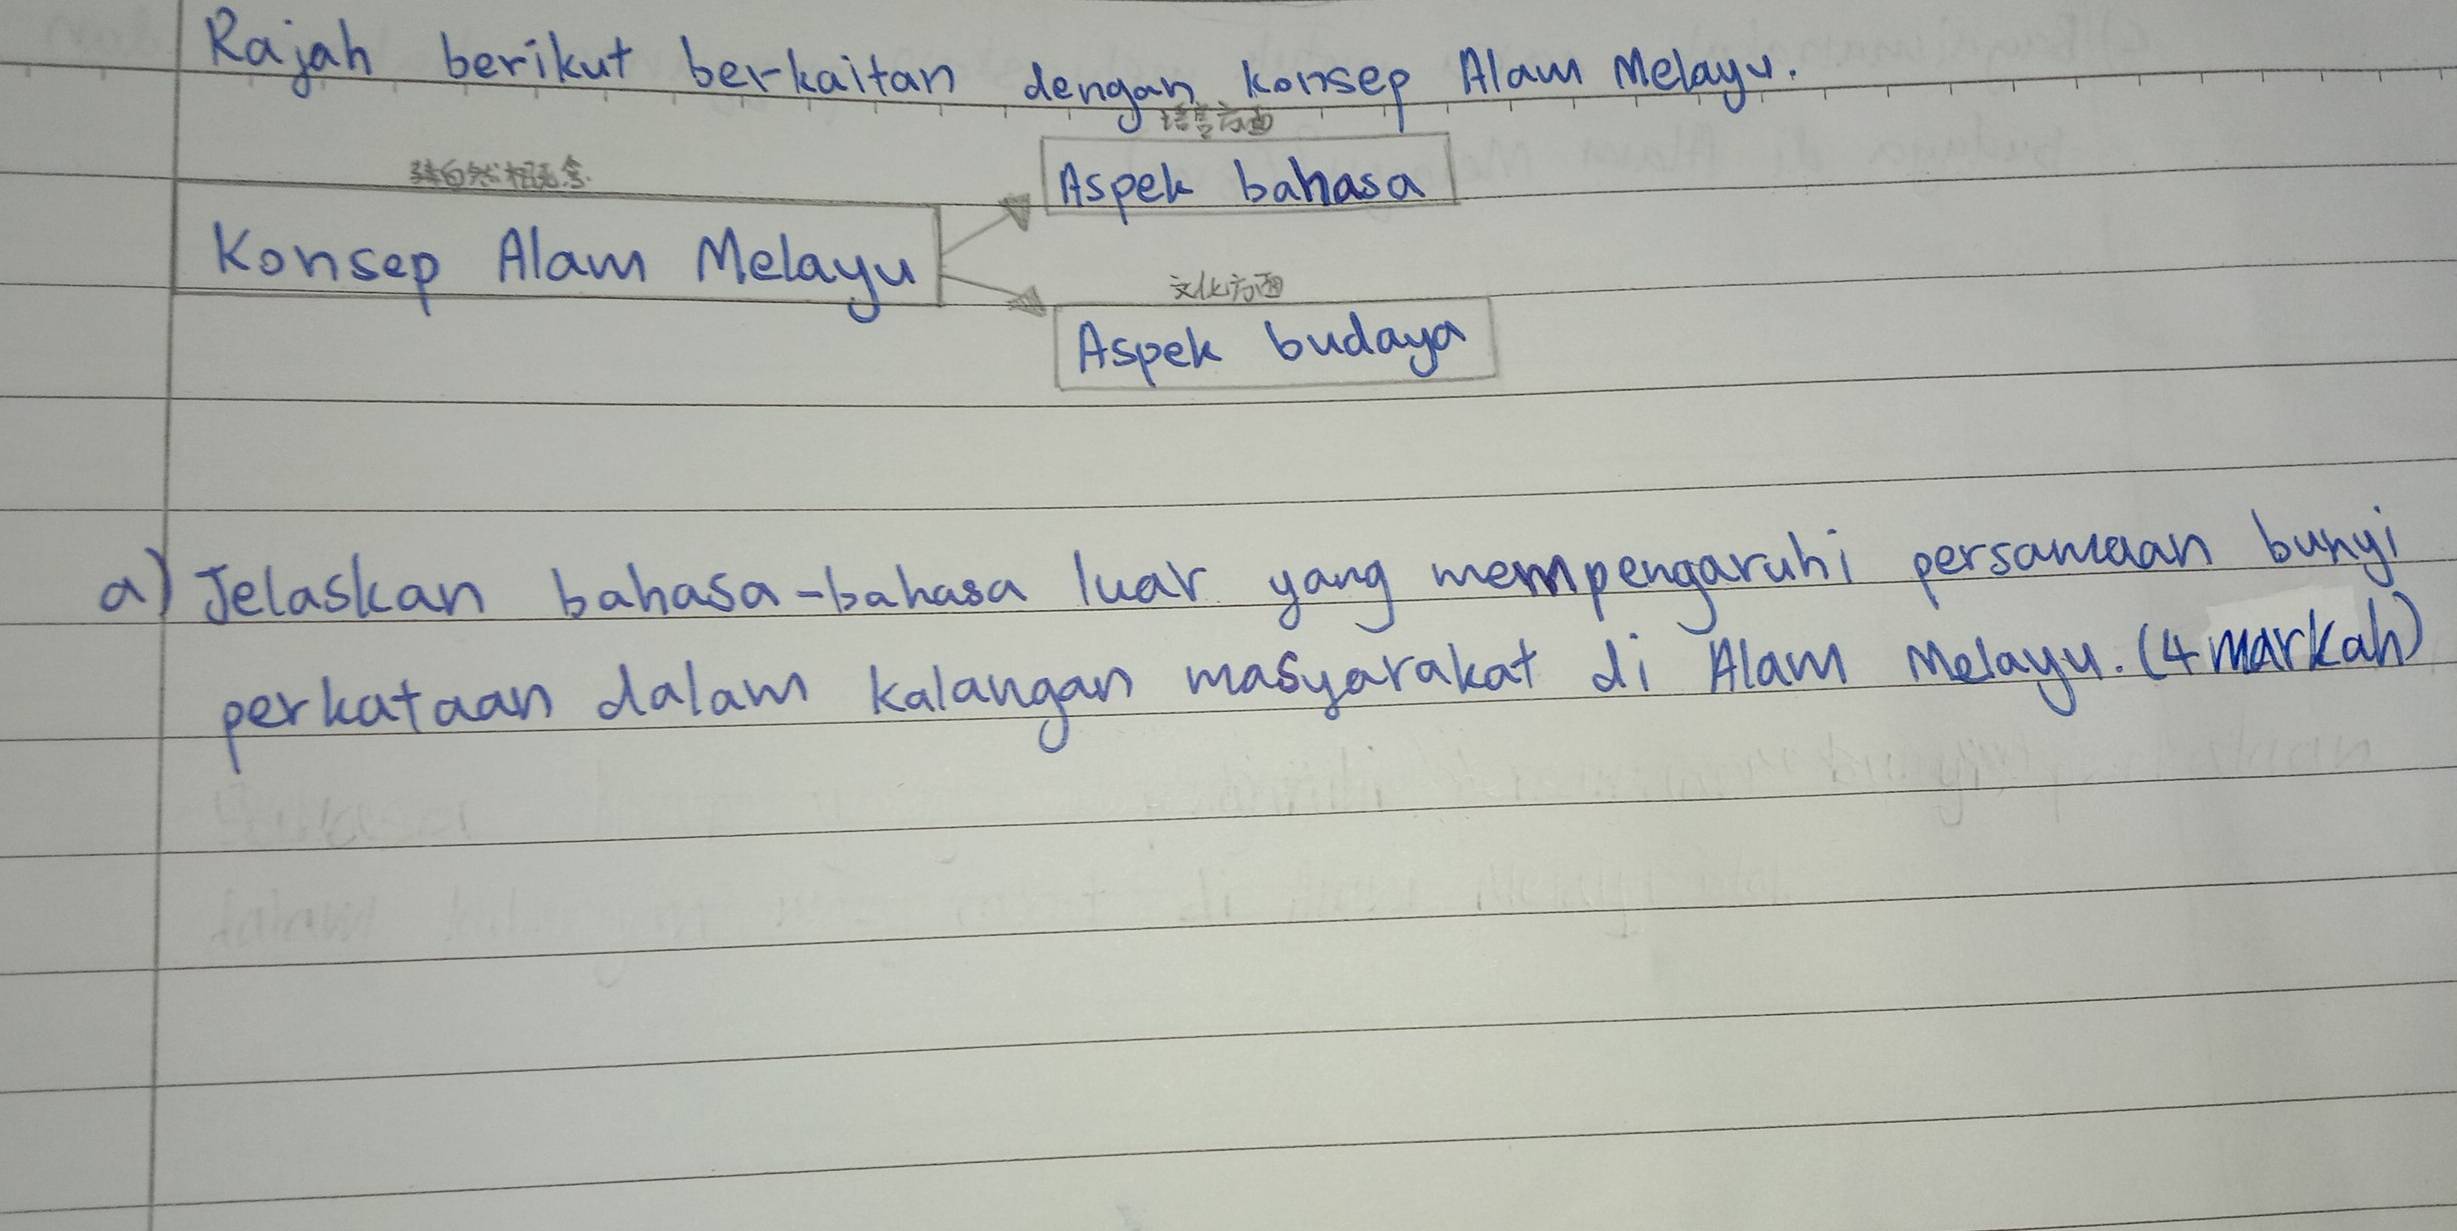 Rajah berikut berkaitan dengan konsep Alam Melayu.
语言方面
Aspek bahasa
Konsep Alam Melayu
文化方面
Aspek budaya
a) Jelaskan bahasa-bahasa luar yang mempengaruhi persamaan bunyi
perkataan dalam kalangan masyarakat di Alam Melayu. (4 markah)